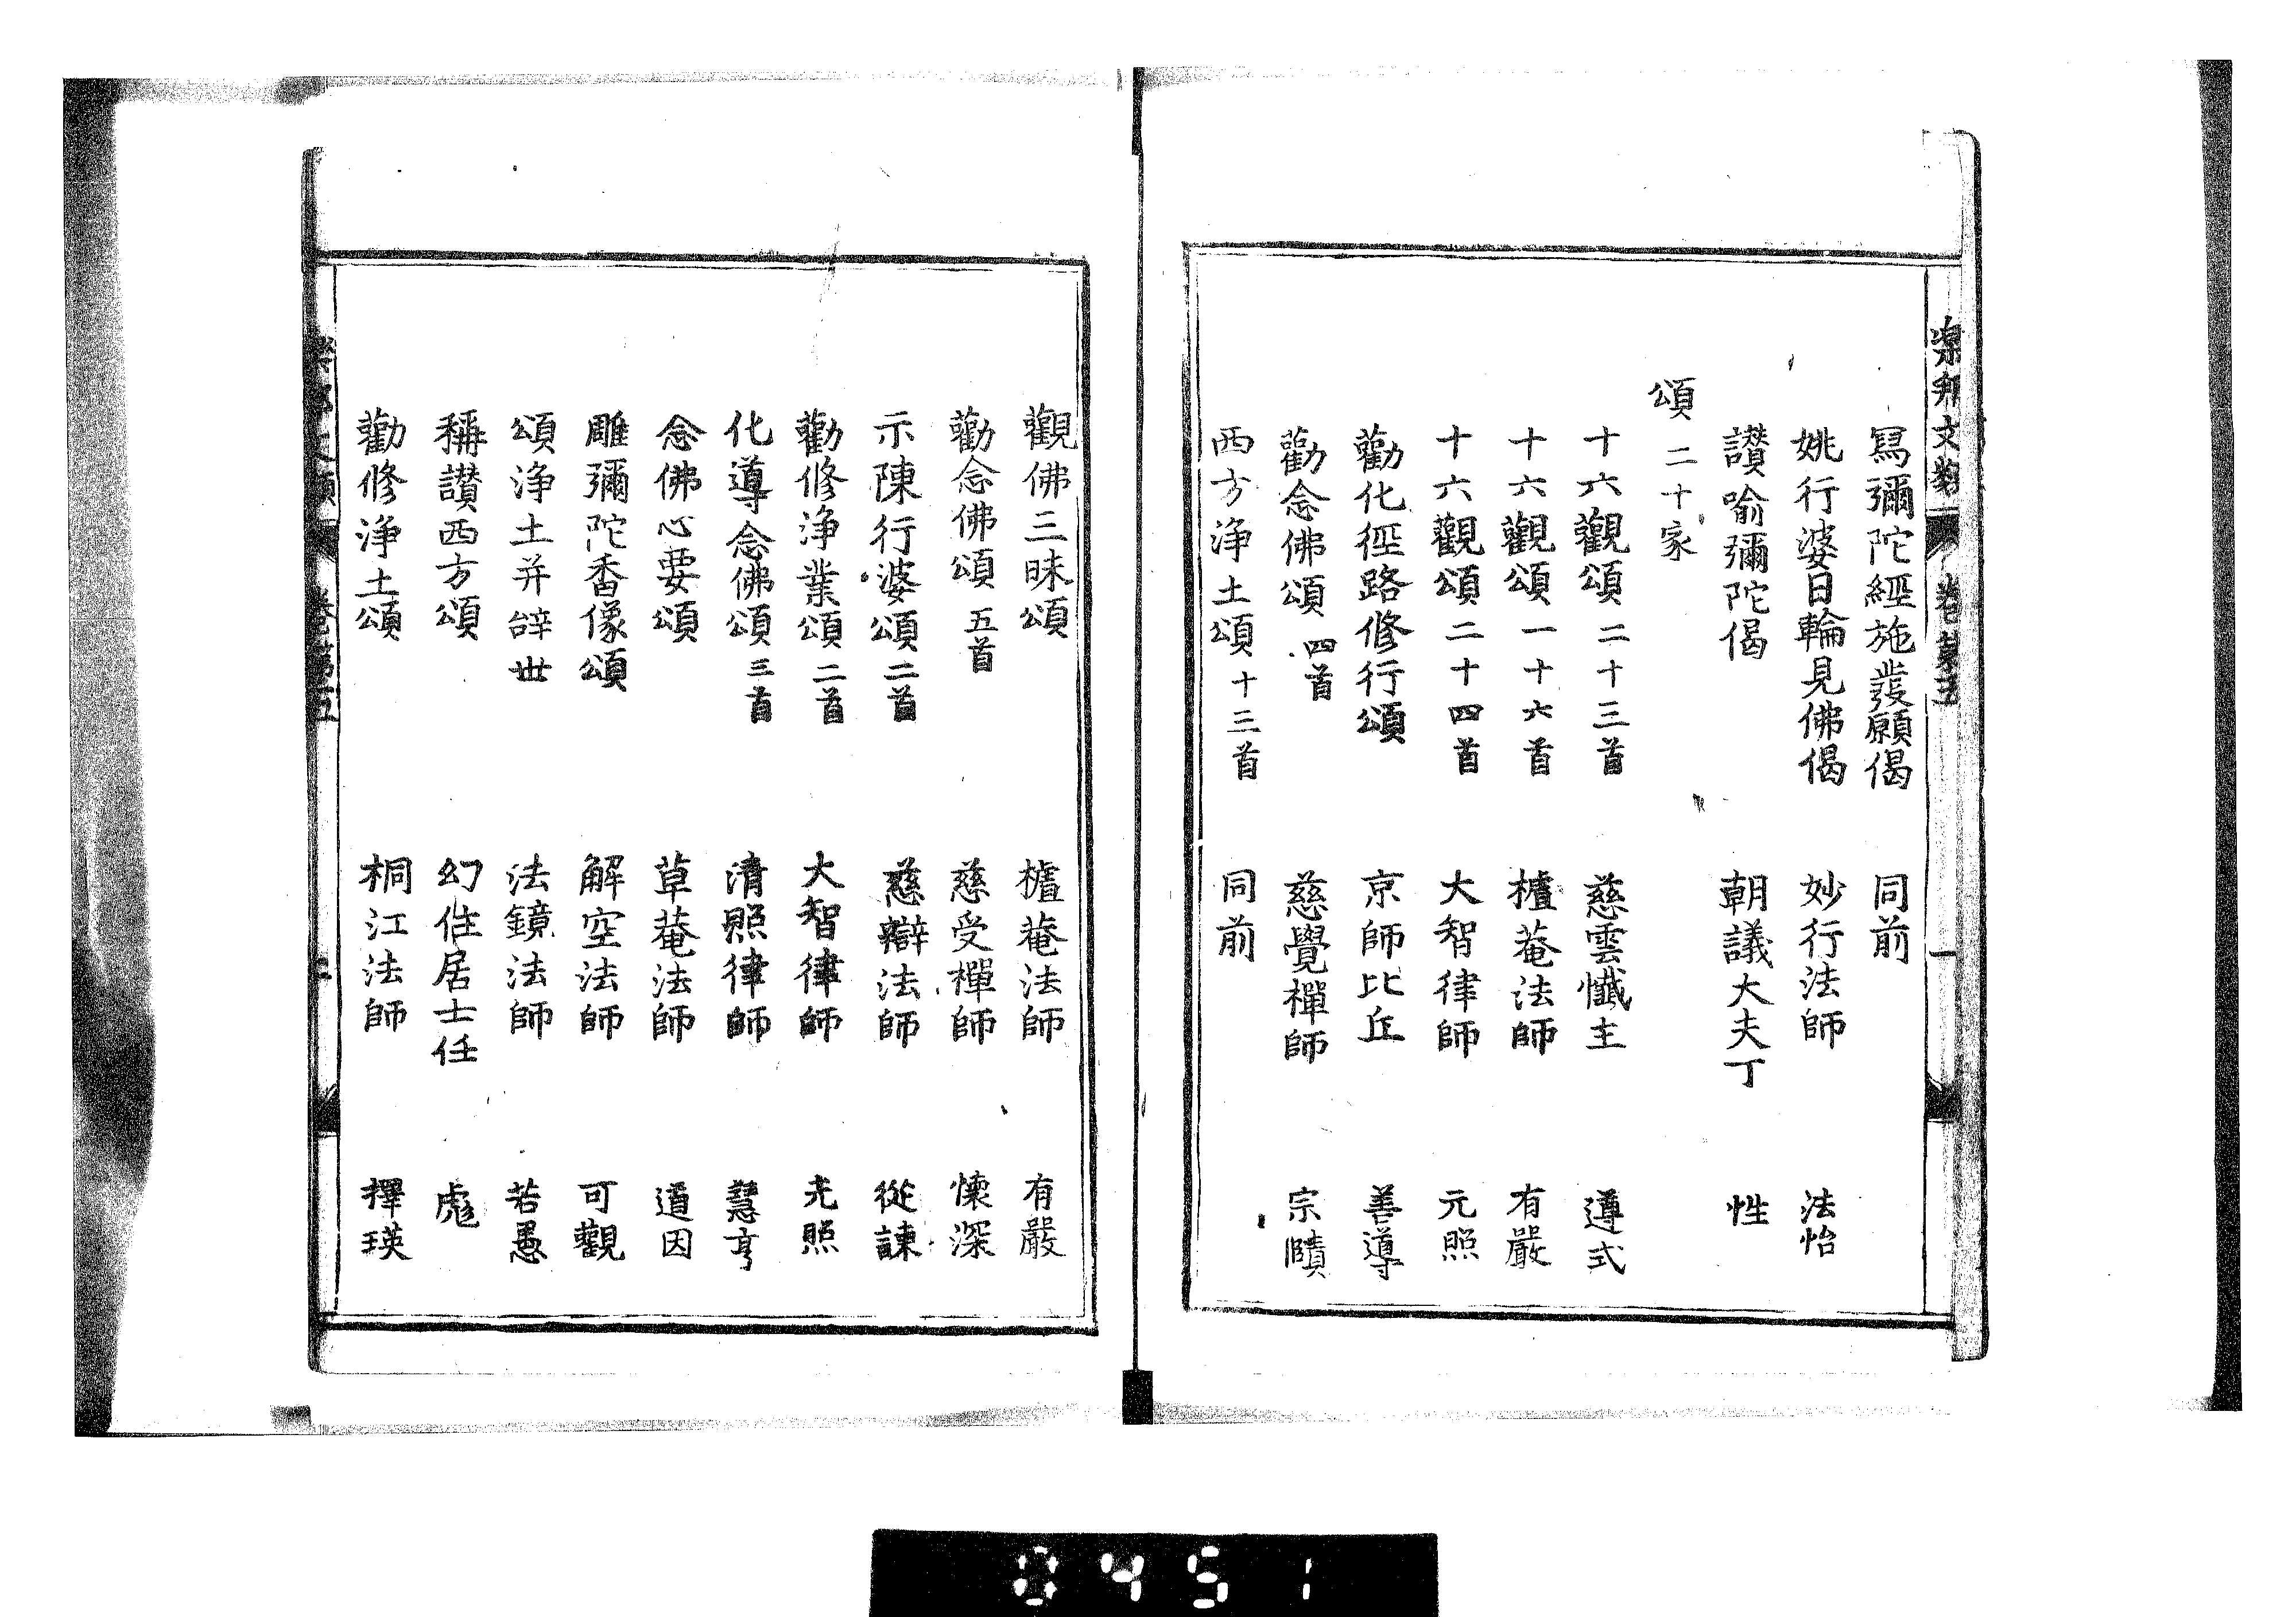 樂邦文類 卷第五 一
寫彌陀經施發願偈 同前
姚行婆日輪見佛偈 妙行法師 法怡
讃喻彌陀偈 朝議大夫丁 性
頌 二十家
十六觀頌 二十三首 慈雲懺主 遵式
十六觀頌 一十六首 樝菴法師 有嚴
十六觀頌 二十四首 大智律師 元照
勸化徑路修行頌 京師比丘 善導
勸念佛頌 四首 慈覺禪師 宗賾
西方淨土頌 十三首 同前
觀佛三昧頌 樝菴法師 有嚴
勸念佛頌 五首 慈受禪師 懷深
示陳行婆頌 二首 慈辯法師 從諫
勸修淨業頌 二首 大智律師 元照
化導念佛頌 三首 清照律師 慧亨
念佛心要頌 草菴法師 道因
雕彌陀香像頌 解空法師 可觀
頌淨土并辭世 法鏡法師 若愚
稱讃西方頌 幻住居士任 彪
勸修淨土頌 桐江法師 擇瑛
樂邦文類 卷第五 二
0451